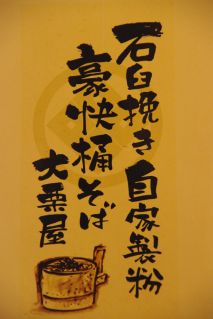 石臼挽き自家製粉
豪快桶そば
大栗屋